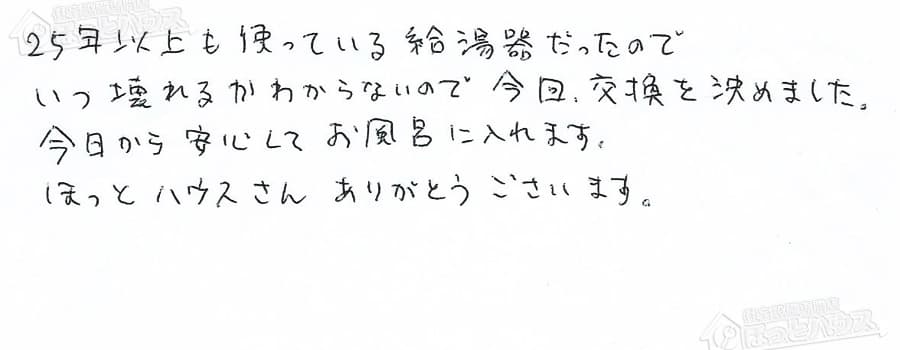 25年以上も使っている給湯器だったので
いつ壊れるかわからないので今回、交換を決めました。
今日から安心してお風呂に入れます。
ほっとハウスさんありがとうございます。
ほっとハウス
ほっとハウス